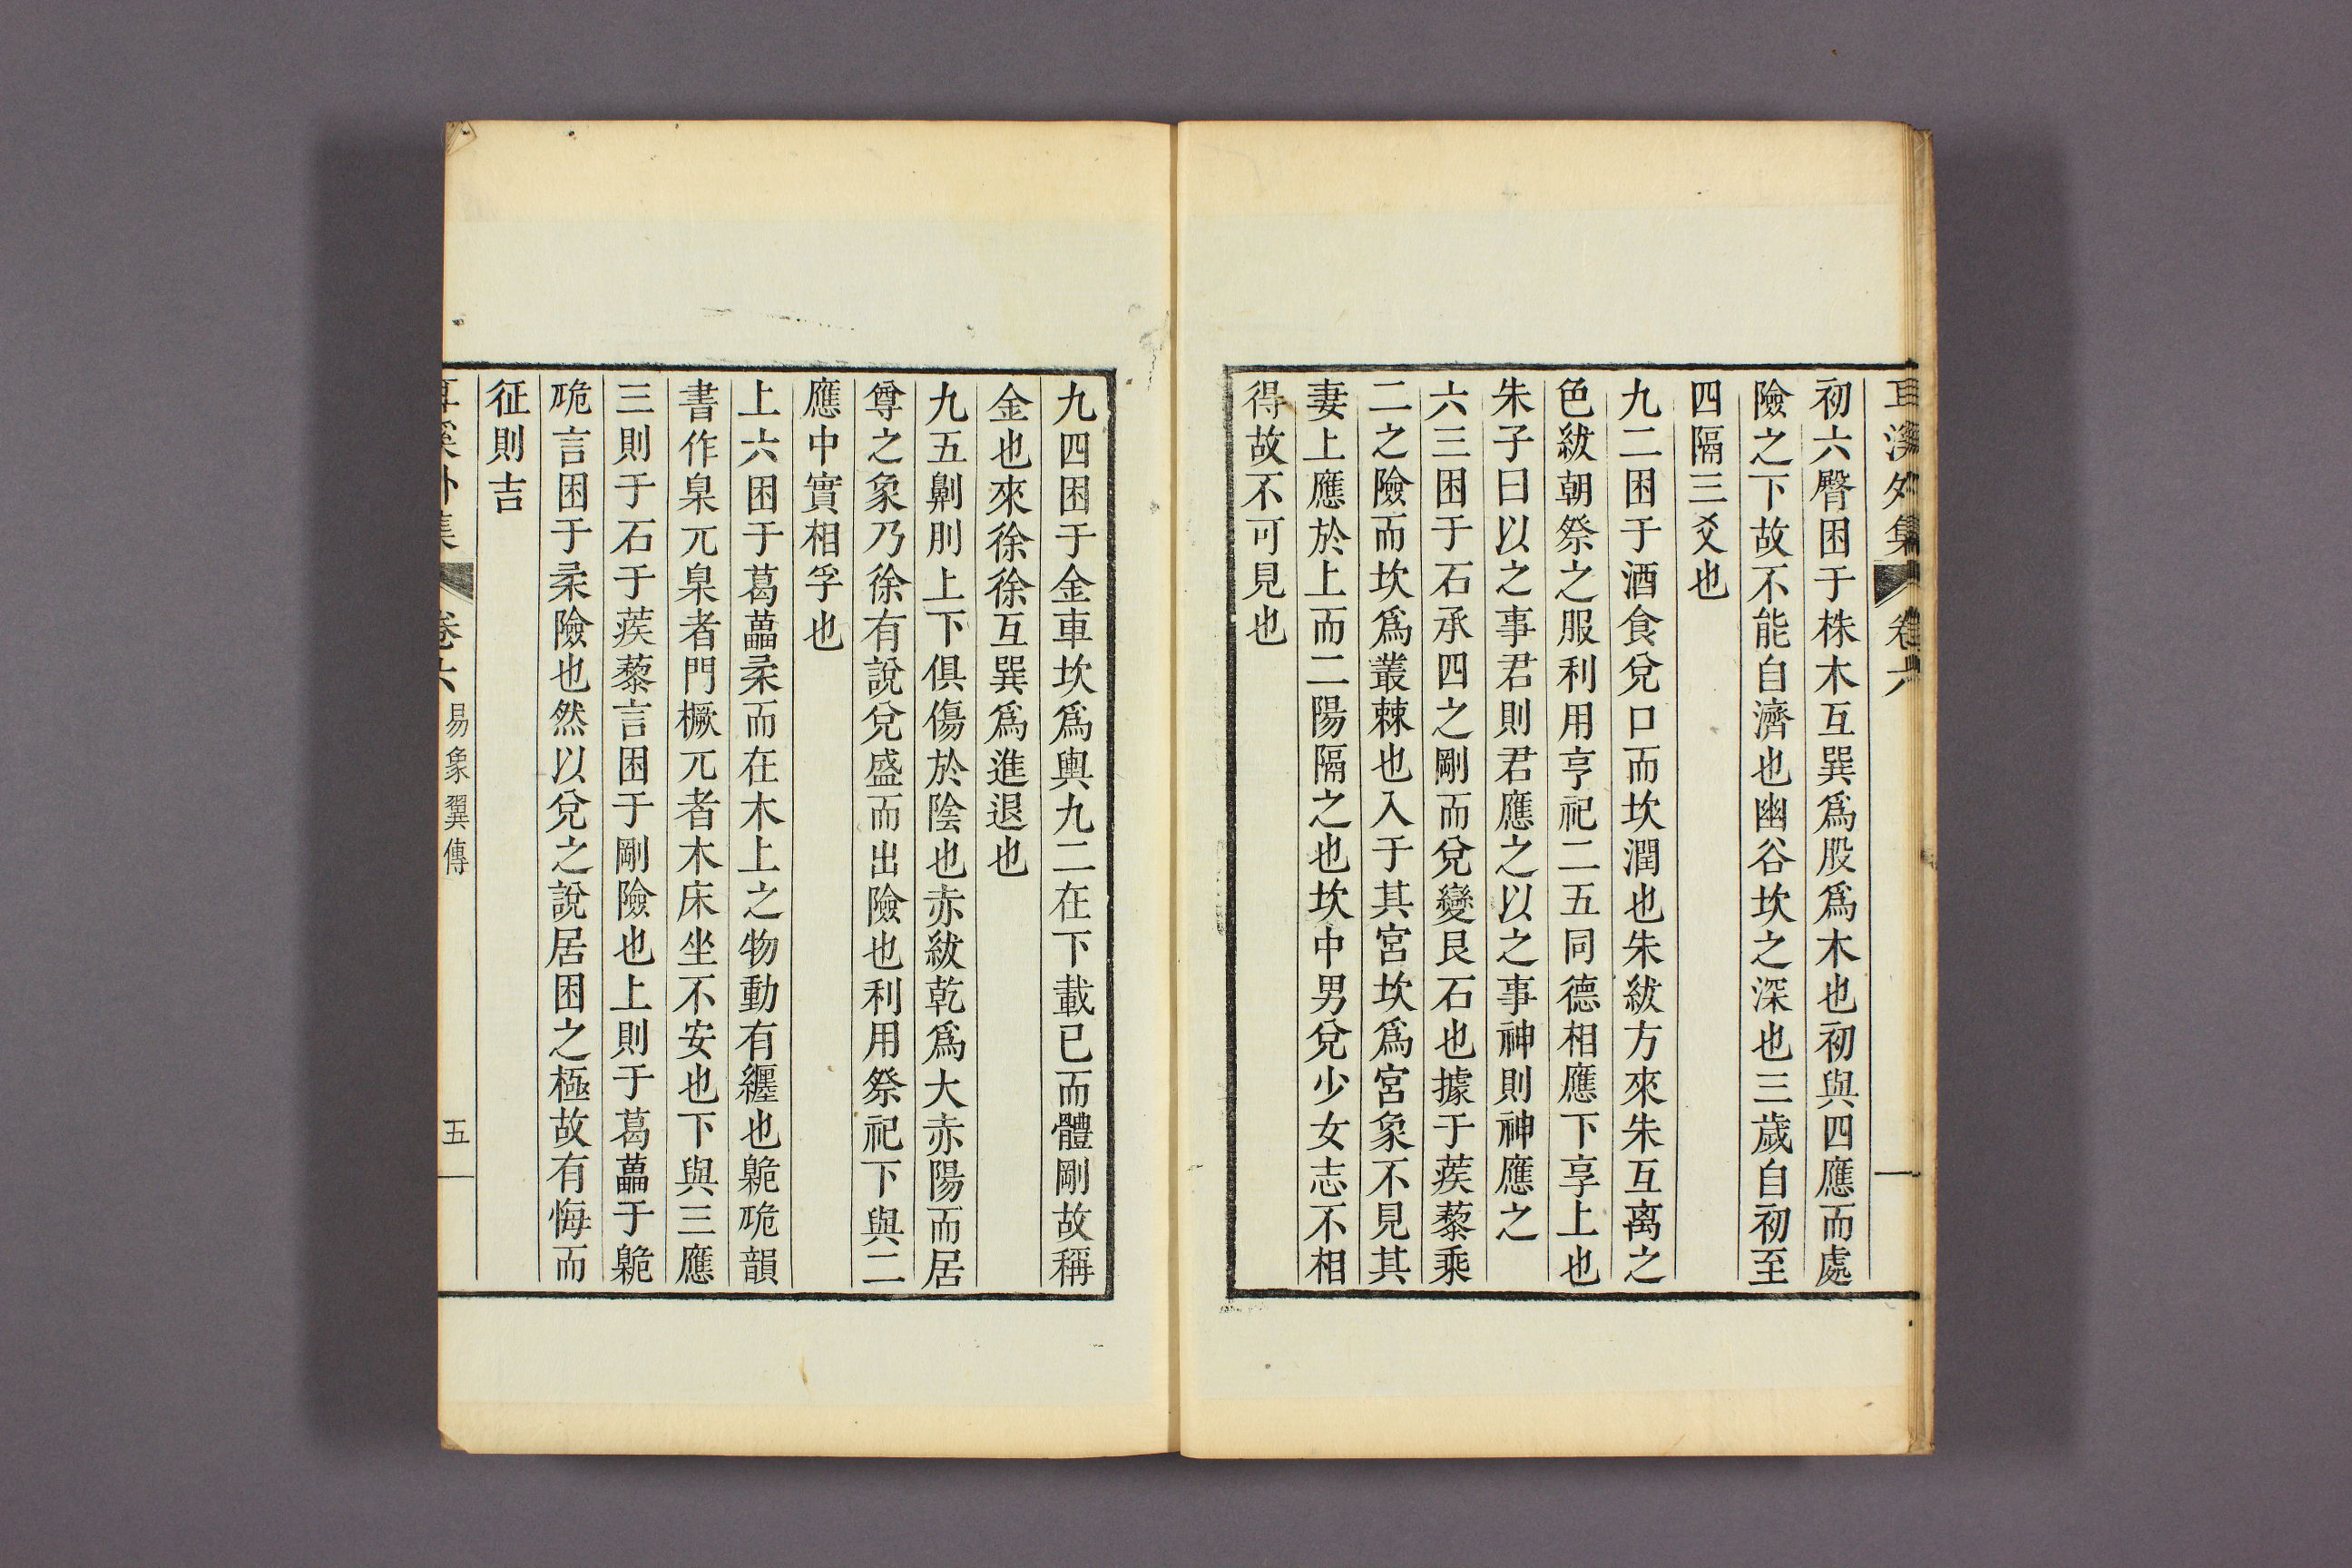 耳溪外集 卷六
初六臀困于株木互巽爲股爲木也初與四應而處
險之下故不能自濟也幽谷坎之深也三歲自初至
四隔三爻也
九二困于酒食兌口而坎潤也朱紱方來朱互离之
色紱朝祭之服利用亨祀二五同德相應下享上也
朱子曰以之事君則君應之以之事神則神應之
六三困于石承四之剛而兌變艮石也據于蒺藜乘
二之險而坎爲叢棘也入于其宮坎爲宮象不見其
妻上應於上而二陽隔之也坎中男兌少女志不相
得故不可見也
九四困于金車坎爲輿九二在下載已而體剛故稱
金也來徐徐互巽爲進退也
九五劓刖上下俱傷於陰也赤紱乾爲大赤陽而居
尊之象乃徐有說兌盛而出險也利用祭祀下與二
應中實相孚也
上六困于葛藟柔而在木上之物動有纏也臲卼韻
書作臬兀臬者門橛兀者木床坐不安也下與三應
三則于石于蒺藜言困于剛險也上則于葛藟于臲
卼言困于柔險也然以兌之說居困之極故有悔而
征則吉
耳溪外集 卷六 易象翼傳 五